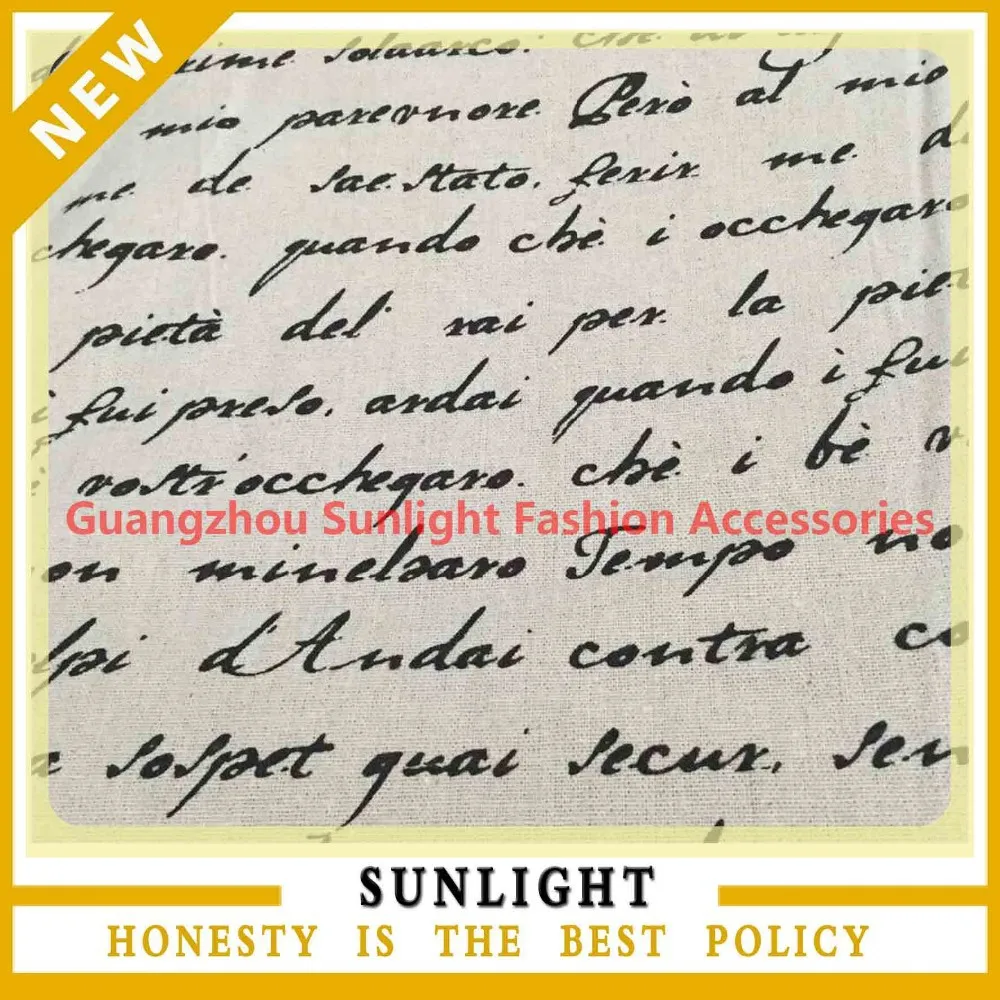 NEW
mio parervnore. Però al mio
me de sae.stato. ferir me d
chegaro. quando chè i occhegaro
pietà del' rai per la piet
i fui preso. ardai quando i fui
vostr'occhegaro. chè i bè v
Guangzhou Sunlight Fashion Accessories
on minelsaro Tempo no
lpi d'Andai contra co
sospet quai secur. sen
SUNLIGHT
HONESTY IS THE BEST POLICY